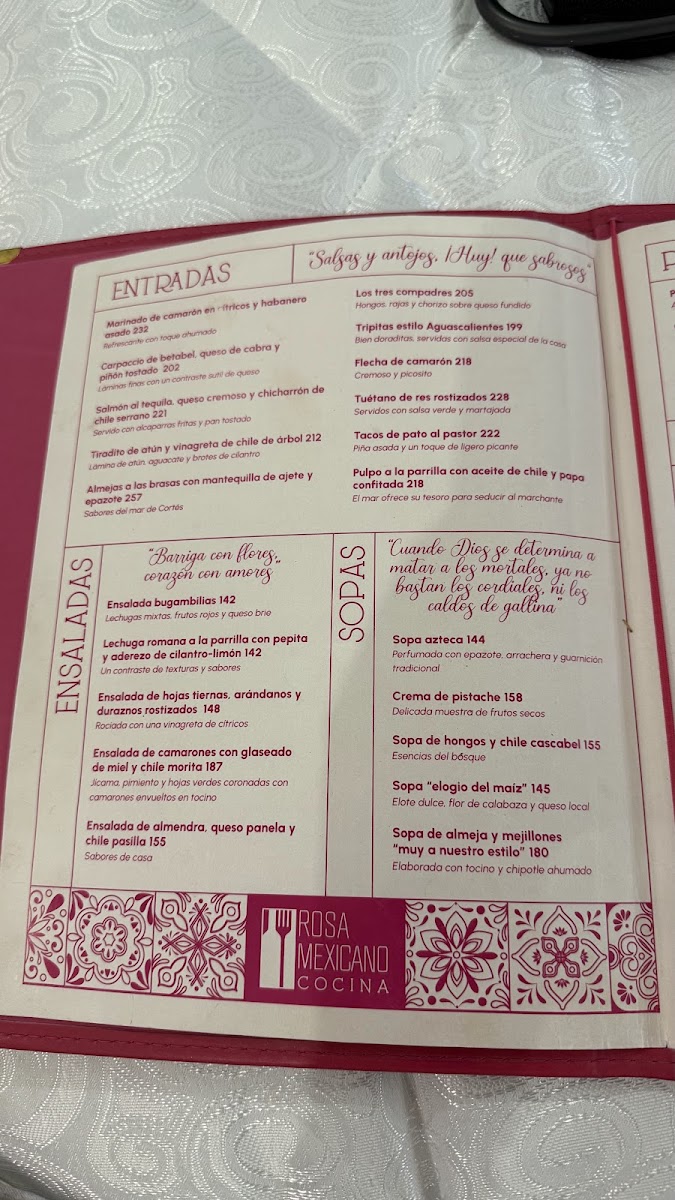 ENTRADAS
"Salsas y antojos, ¡Huy! que sabrosos"
Marinado de camarón en cítricos y habanero
asado 232
Refrescante con toque ahumado
Carpaccio de betabel, queso de cabra y
piñón tostado 202
Láminas finas con un contraste sutil de queso
Salmón al tequila, queso cremoso y chicharrón de
chile serrano 221
Servido con alcaparras fritas y pan tostado
Tiradito de atún y vinagreta de chile de árbol 212
Lámina de atún, aguacate y brotes de cilantro
Almejas a las brasas con mantequilla de ajete y
epazote 257
Sabores del mar de Cortés
Los tres compadres 205
Hongos, rajas y chorizo sobre queso fundido
Tripitas estilo Aguascalientes 199
Bien doraditas, servidas con salsa especial de la casa
Flecha de camarón 218
Cremoso y picosito
Tuétano de res rostizados 228
Servidos con salsa verde y martajada
Tacos de pato al pastor 222
Piña asada y un toque de ligero picante
Pulpo a la parrilla con aceite de chile y papa
confitada 218
El mar ofrece su tesoro para seducir al marchante
ENSALADAS
"Barriga con flores,
corazón con amores"
Ensalada bugambilias 142
Lechugas mixtas, frutos rojos y queso brie
Lechuga romana a la parrilla con pepita
y aderezo de cilantro-limón 142
Un contraste de texturas y sabores
Ensalada de hojas tiernas, arándanos y
duraznos rostizados 148
Rociada con una vinagreta de cítricos
Ensalada de camarones con glaseado
de miel y chile morita 187
Jícama, pimiento y hojas verdes coronadas con
camarones envueltos en tocino
Ensalada de almendra, queso panela y
chile pasilla 155
Sabores de casa
SOPAS
"Cuando Dios se determina a
matar a los mortales, ya no
bastan los cordiales, ni los
caldos de gallina"
Sopa azteca 144
Perfumada con epazote, arrachera y guarnición
tradicional
Crema de pistache 158
Delicada muestra de frutos secos
Sopa de hongos y chile cascabel 155
Esencias del bósque
Sopa "elogio del maíz" 145
Elote dulce, flor de calabaza y queso local
Sopa de almeja y mejillones
"muy a nuestro estilo" 180
Elaborada con tocino y chipotle ahumado
ROSA
MEXICANO
COCINA